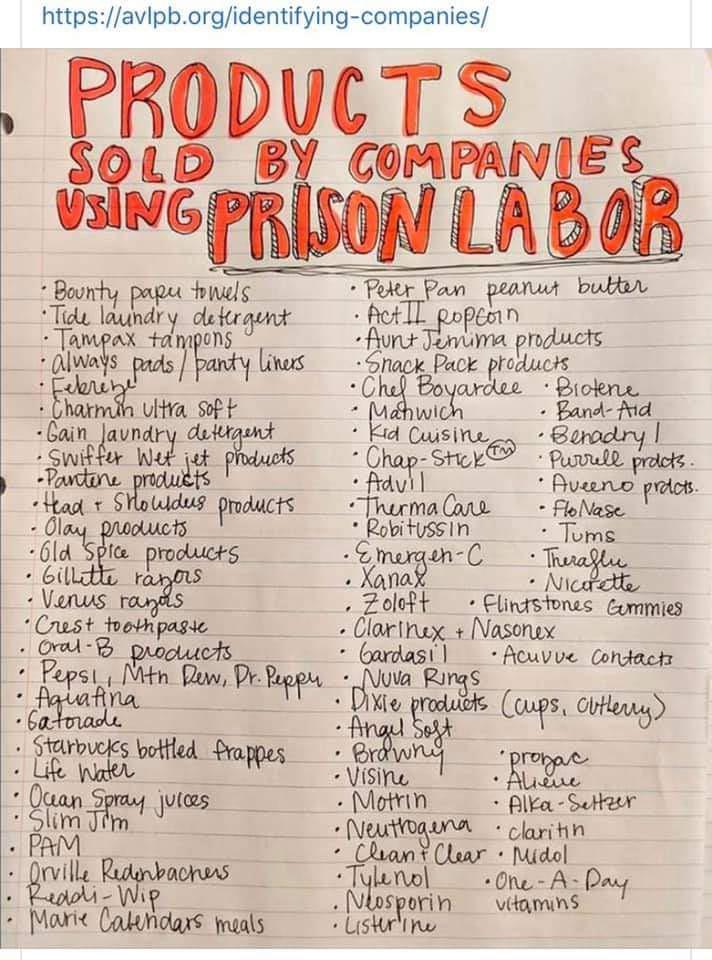 https://avlpb.org/identifying-companies/
PRODUCTS
SOLD BY COMPANIES
USING PRISON LABOR
• Bounty paper towels
• Tide laundry detergent
• Tampax tampons
• Always pads / panty liners
• Febreze
• Charmin ultra soft
• Gain laundry detergent
• Swiffer Wet jet products
• Pantene products
• Head + Shoulders products
• Olay products
• Old Spice products
• Gillette razors
• Venus razors
• Crest toothpaste
• Oral-B products
• Pepsi, Mtn Dew, Dr. Pepper
• Aquafina
• Gatorade
• Starbucks bottled frappes
• Life Water
• Ocean Spray juices
• Slim Jim
• PAM
• Orville Redenbachers
• Reddi-Wip
• Marie Calendars meals
• Peter Pan peanut butter
• Act II popcorn
• Aunt Jemima products
• Snack Pack products
• Chef Boyardee • Biotene
• Manwich • Band-Aid
• Kid Cuisine • Benadryl
• Chap-Stick TM • Purrell prdcts.
• Advil • Aveeno prdcts.
• ThermaCare • FloNase
• Robitussin • Tums
• Emergen-C • Theraflu
• Xanax • Nicorette
• Zoloft • Flintstones Gummies
• Clarinex + Nasonex
• Gardasil • Acuvue contacts
• Nuva Rings
• Dixie products (cups, cutlerry)
• Angel Soft
• Brawny • prozac
• Visine • Alieve
• Motrin • Alka-Seltzer
• Neutrogena • claritin
• Clean + Clear • Midol
• Tylenol • One-A-Day
• Neosporin vitamins
• Listerine